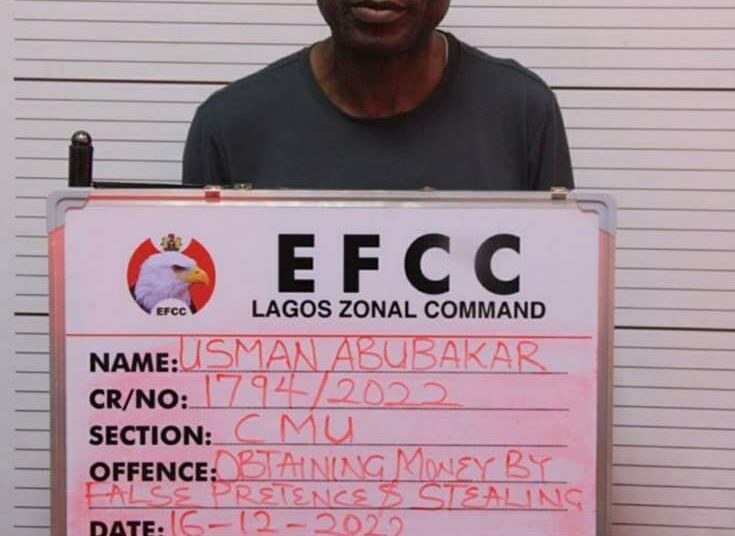 EFCC
EFCC
LAGOS ZONAL COMMAND
NAME: USMAN ABUBAKAR
CR/NO: 1794/2022
SECTION: CMU
OFFENCE: OBTAINING MONEY BY
FALSE PRETENCE & STEALING
DATE: 16-12-2022